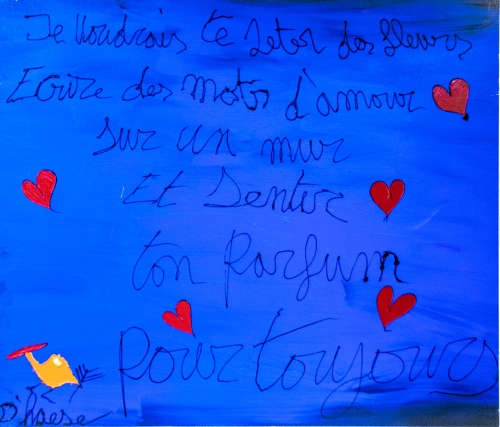 Je Voudrais te Jeter des fleurs
Ecrire des mots d'amour
sur un mur
Et Sentir
ton parfum
pour toujours
D'haese